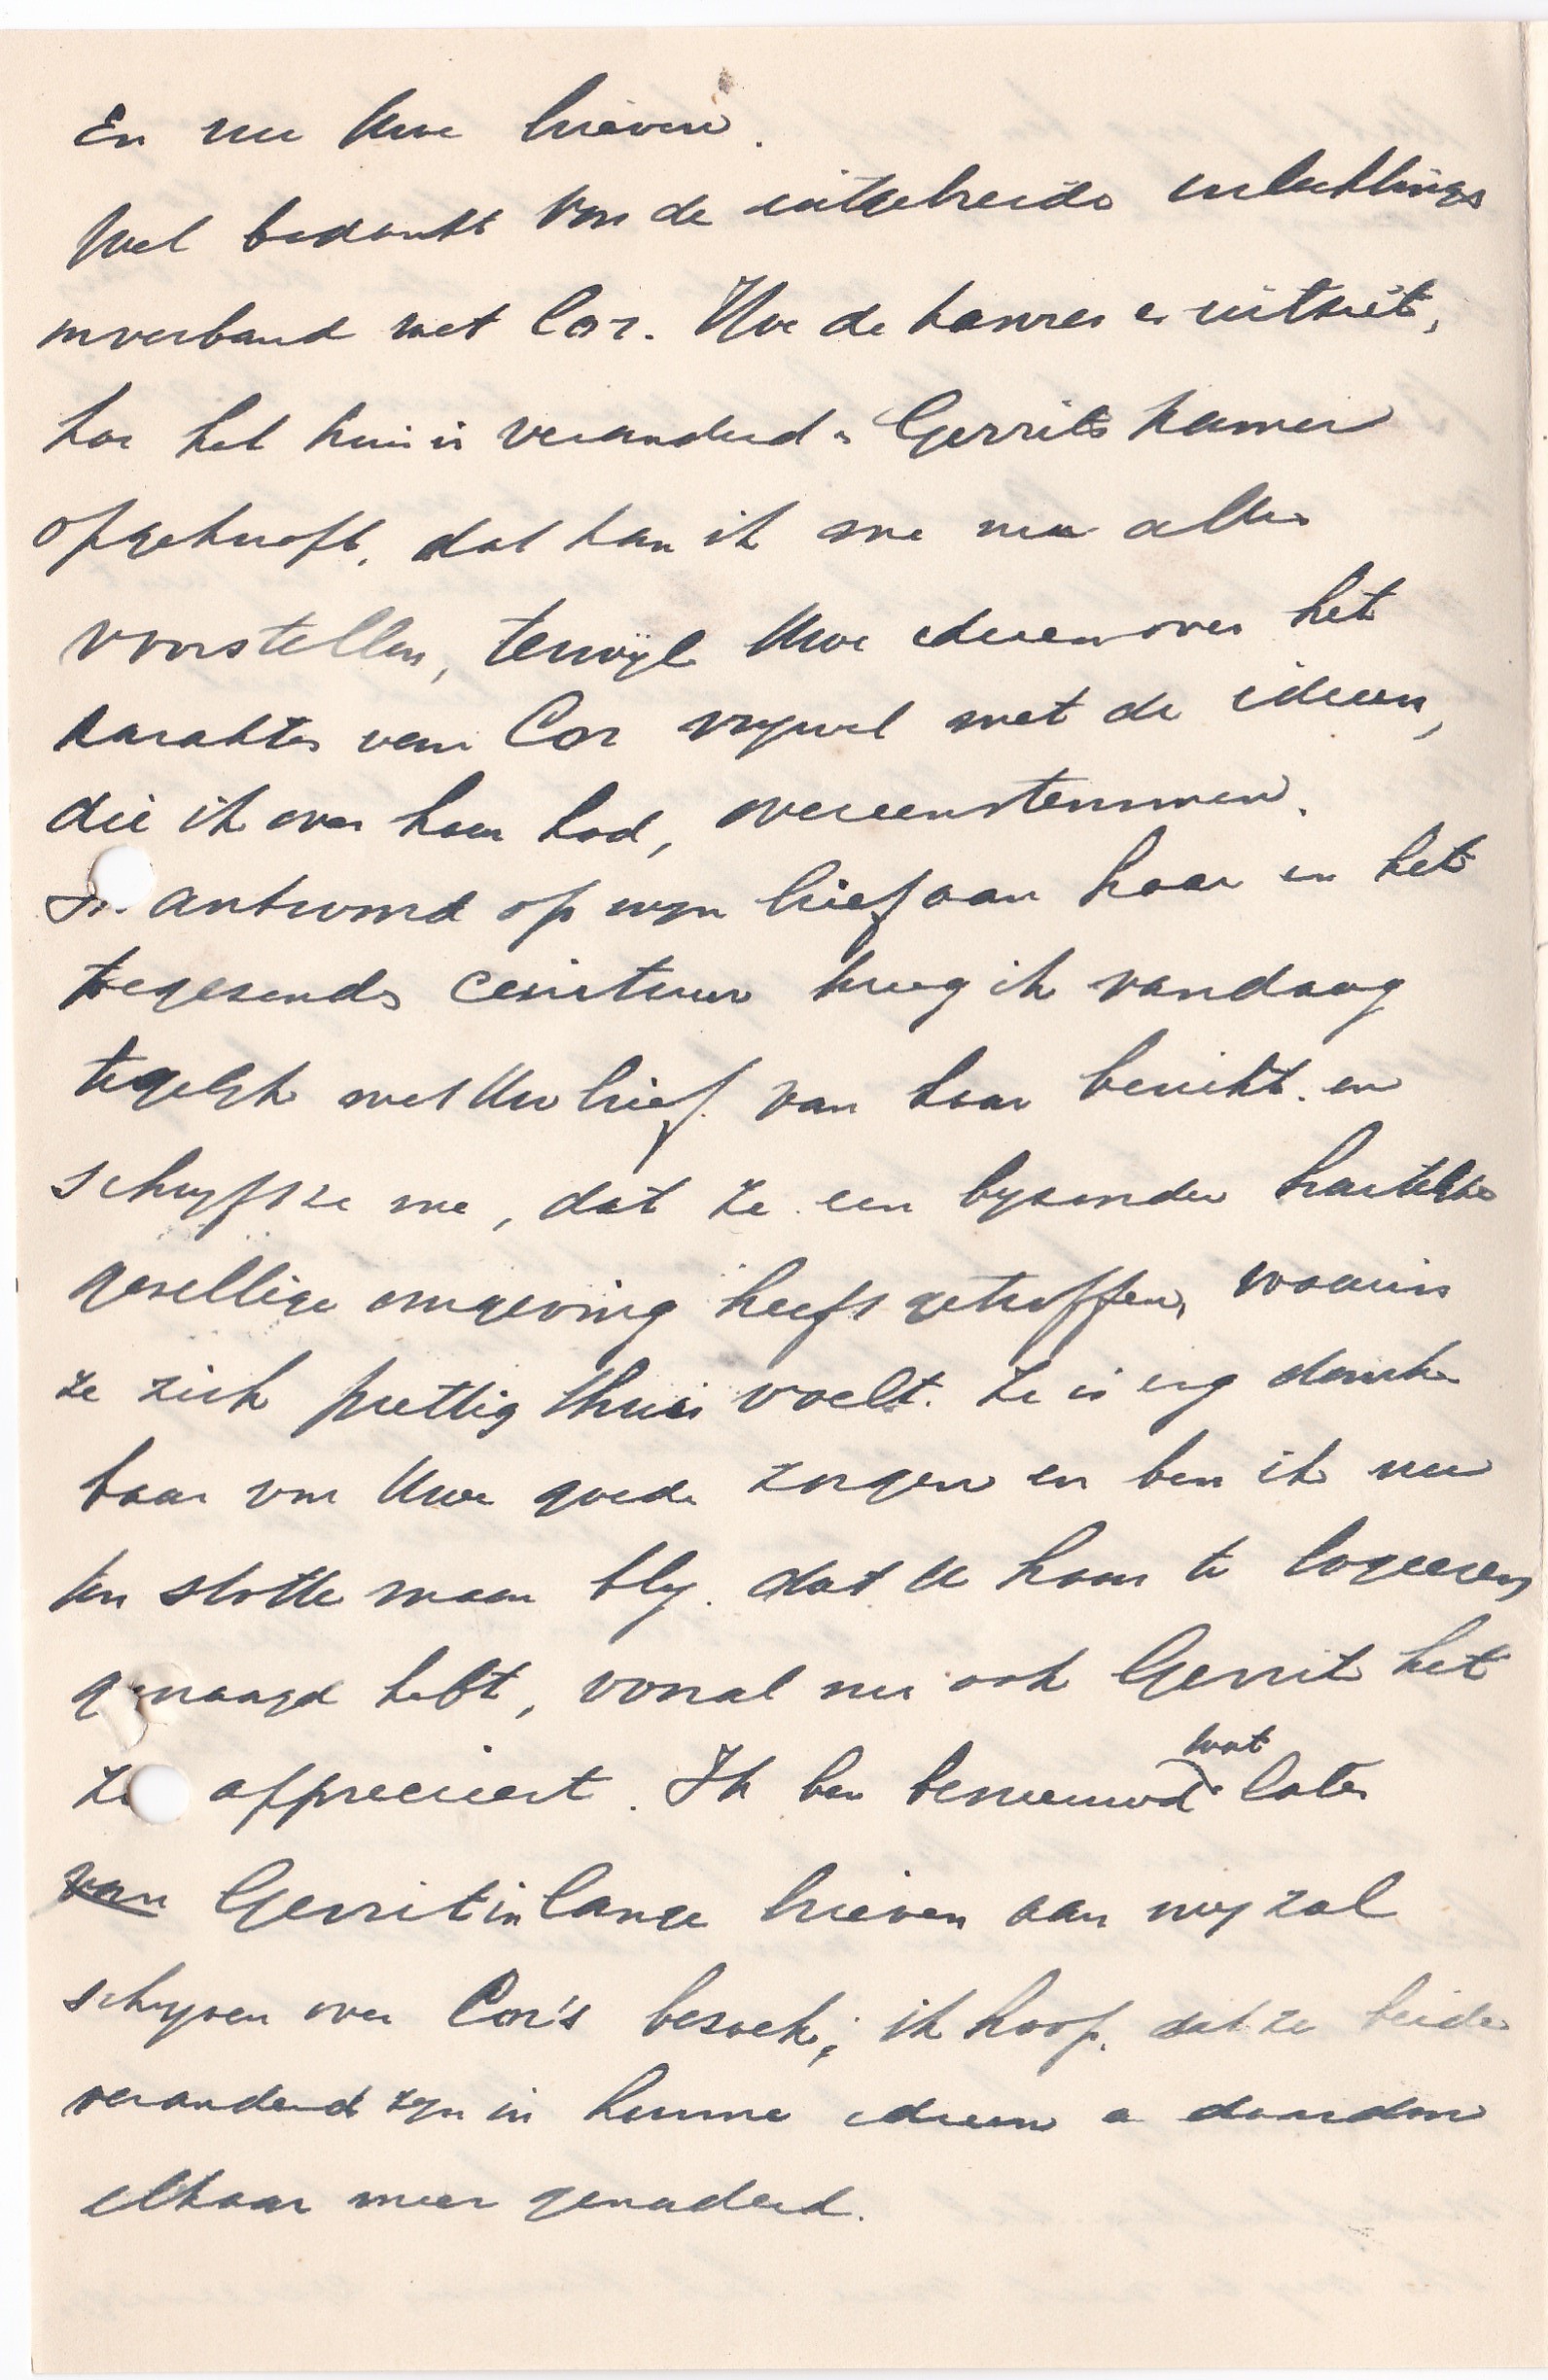 En nu Uwe brieven.
Wel bedankt voor de uitgebreide inlichtings
in verband met Cor. Hoe de kamer er uitziet,
hoe het huis is veranderd en Gerrits kamer
opgeknapt, dat kan ik me nu alles
voorstellen, terwijl Uwe ideeen over het
karakter van Cor vrijwel met de ideeen,
die ik over haar had, overeenstemmen.
In antwoord op mijn brief aan haar en het
toegezonden ceintuur kreeg ik vandaag
tegelijk met Uw brief van haar bericht en
schrijft ze me, dat ze een bijzonder hartelijke
gezellige omgeving heeft getroffen, waarin
ze zich prettig thuis voelt. Ze is erg dank-
baar voor Uwe goede zorgen en ben ik nu
ten slotte maar blij dat U haar te logeeren
gevraagd hebt, vooral nu ook Gerrit het
zo apprecieert. Ik ben benieuwd wat later
van Gerrit in lange brieven aan mij zal
schrijven over Cor's bezoek; ik hoop, dat ze beide
veranderd zijn in hunne ideeen en daardoor
elkaar meer genaderd.